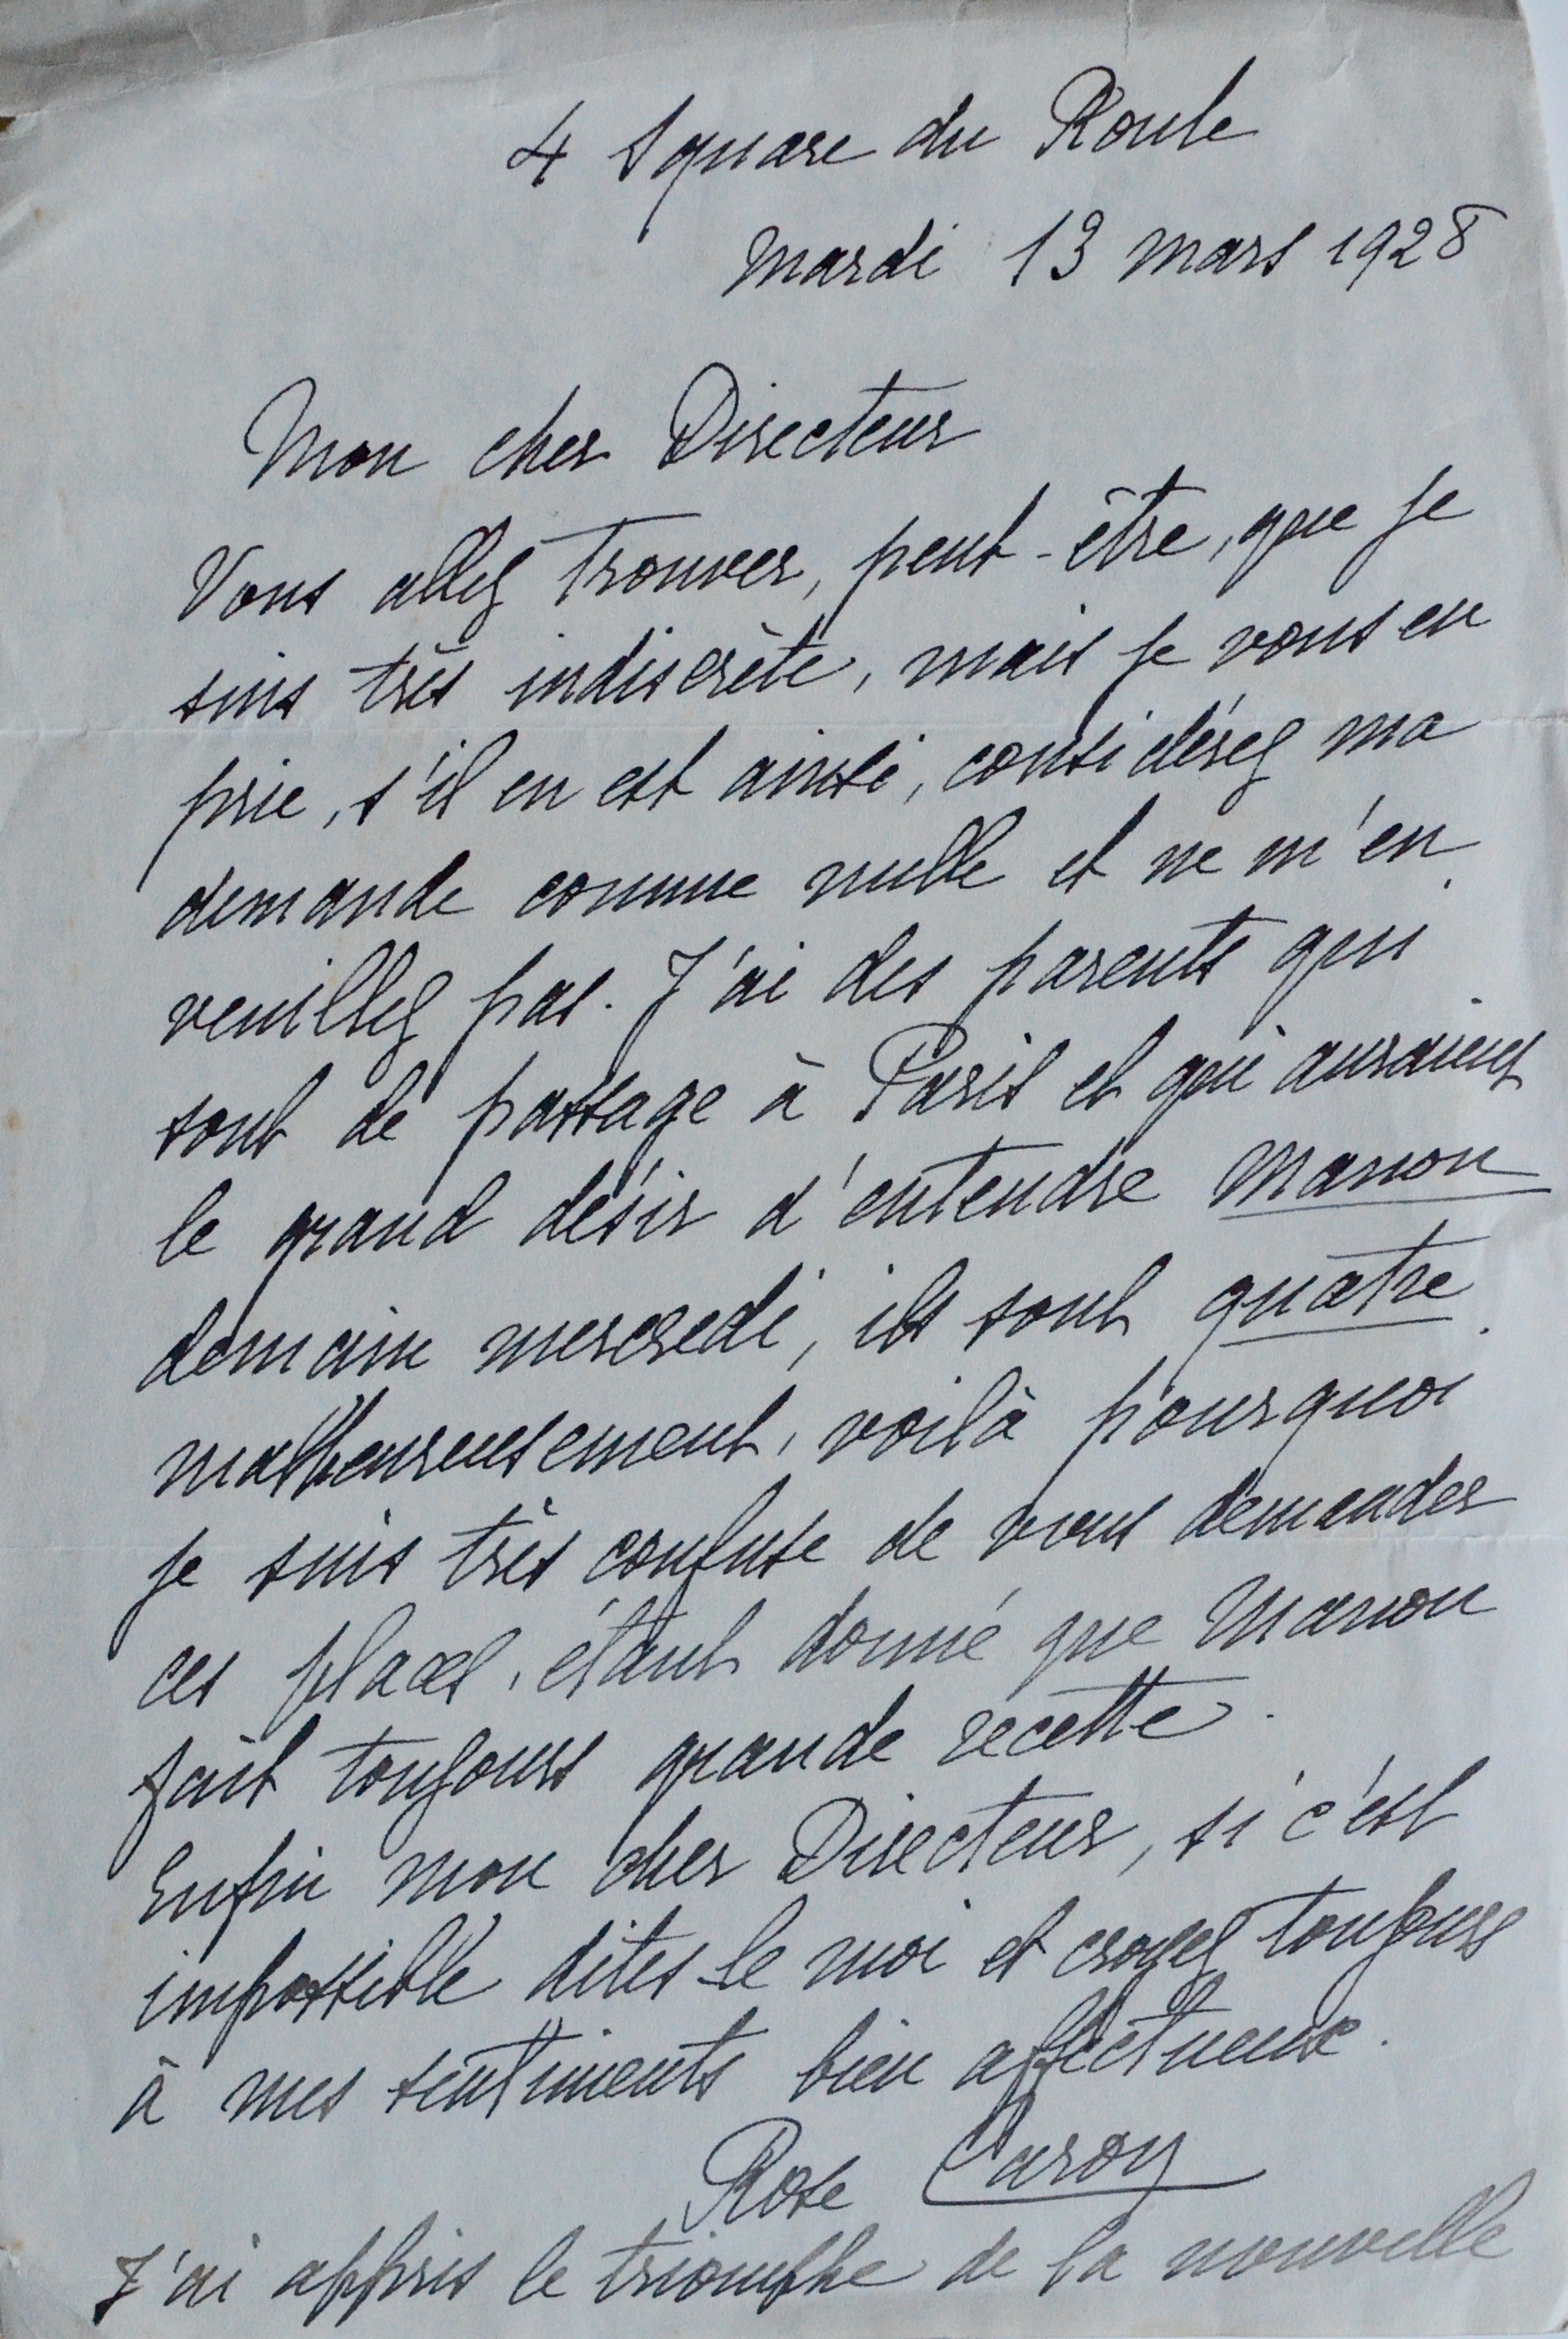 4 Square du Roule
Mardi 13 mars 1928
Mon cher Directeur
Vous allez trouver, peut-être, que je
suis très indiscrète, mais je vous en
prie, s'il en est ainsi, considérez ma
demande comme nulle et ne m'en
veuillez pas. J'ai des parents qui
sont de passage à Paris et qui auraient
le grand désir d'entendre Manon
demain mercredi, ils sont quatre
malheureusement, voilà pourquoi
je suis très confuse de vous demander
ces places, étant donné que Manon
fait toujours grande recette.
Enfin mon cher Directeur, si c'est
impossible dites-le moi et croyez toujours
à mes sentiments bien affectueux.
Rose Caron
J'ai appris le triomphe de la nouvelle